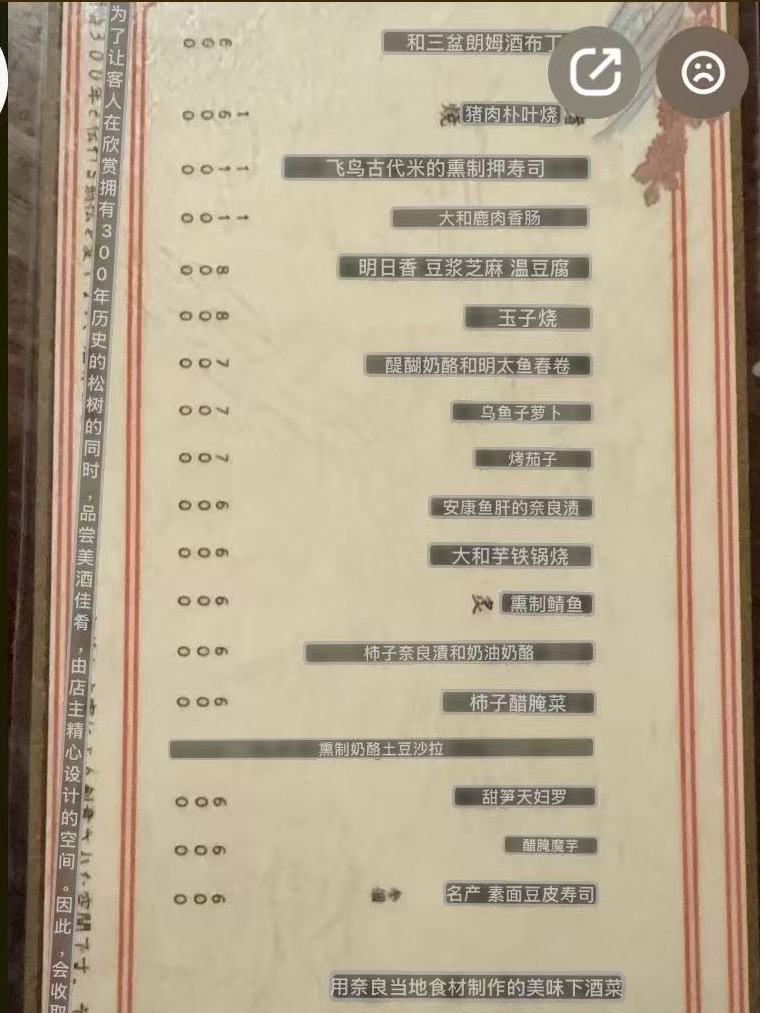 和三盆朗姆酒布丁 600
猪肉朴叶烧 1600
飞鸟古代米的熏制押寿司 1100
大和鹿肉香肠 1100
明日香 豆浆芝麻 温豆腐 800
玉子烧 800
醍醐奶酪和明太鱼春卷 700
乌鱼子萝卜 700
烤茄子 700
安康鱼肝的奈良渍 600
大和芋铁锅烧 600
熏制鲭鱼 600
柿子奈良漬和奶油奶酪 600
柿子醋腌菜 600
熏制奶酪土豆沙拉
甜笋天妇罗 600
醋腌魔芋 600
名产 素面豆皮寿司 600
用奈良当地食材制作的美味下酒菜
为了让客人在欣赏拥有300年历史的松树的同时，品尝美酒佳肴，由店主精心设计的空间。因此，会收取